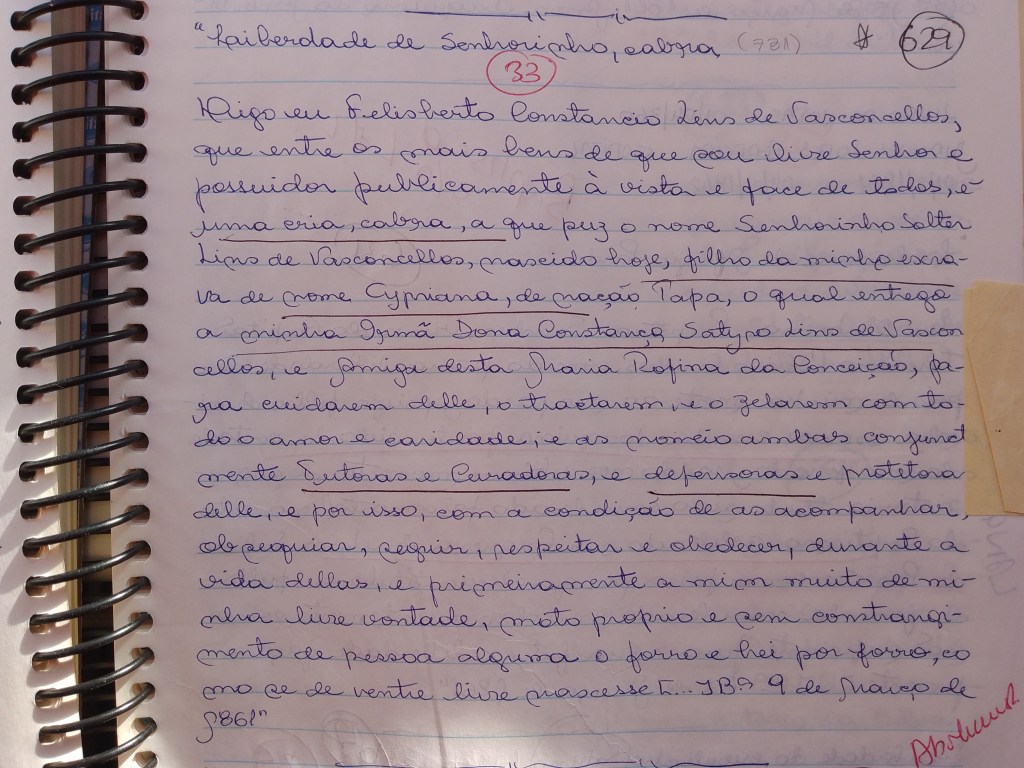 "Liberdade de Senhorinho, cabra (731) # 629
33
Digo eu Felisberto Constancio Lins de Vasconcellos,
que entre os mais bens de que sou livre Senhor e
possuidor publicamente à vista e face de todos, é
uma cria, cabra, a que puz o nome Senhorinho Solter
Lins de Vasconcellos, nascido hoje, filho da minha escra-
va de nome Cypriana, de nação Tapa, o qual entrego
a minha Irmã Dona Constança Satyra Lins de Vascon
cellos, e Amiga desta Maria Rofina da Conceição, pa-
ra cuidarem delle, o tractarem, e o zelarem com to-
do o amor e caridade; e as nomeio ambas conjunct
mente Tutoras e Curadoras, e defensoras e protitoras
delle, e por isso, com a condição de as acompanhar,
obsequiar, seguir, respeitar e obedecer, durante a
vida dellas, e primeiramente a mim muito de mi-
nha livre vontade, moto proprio e sem constrangi-
mento de pessoa alguma o forro e hei por forro, co
mo se de ventre livre nascesse [... JBª 9 de Março de
1861"